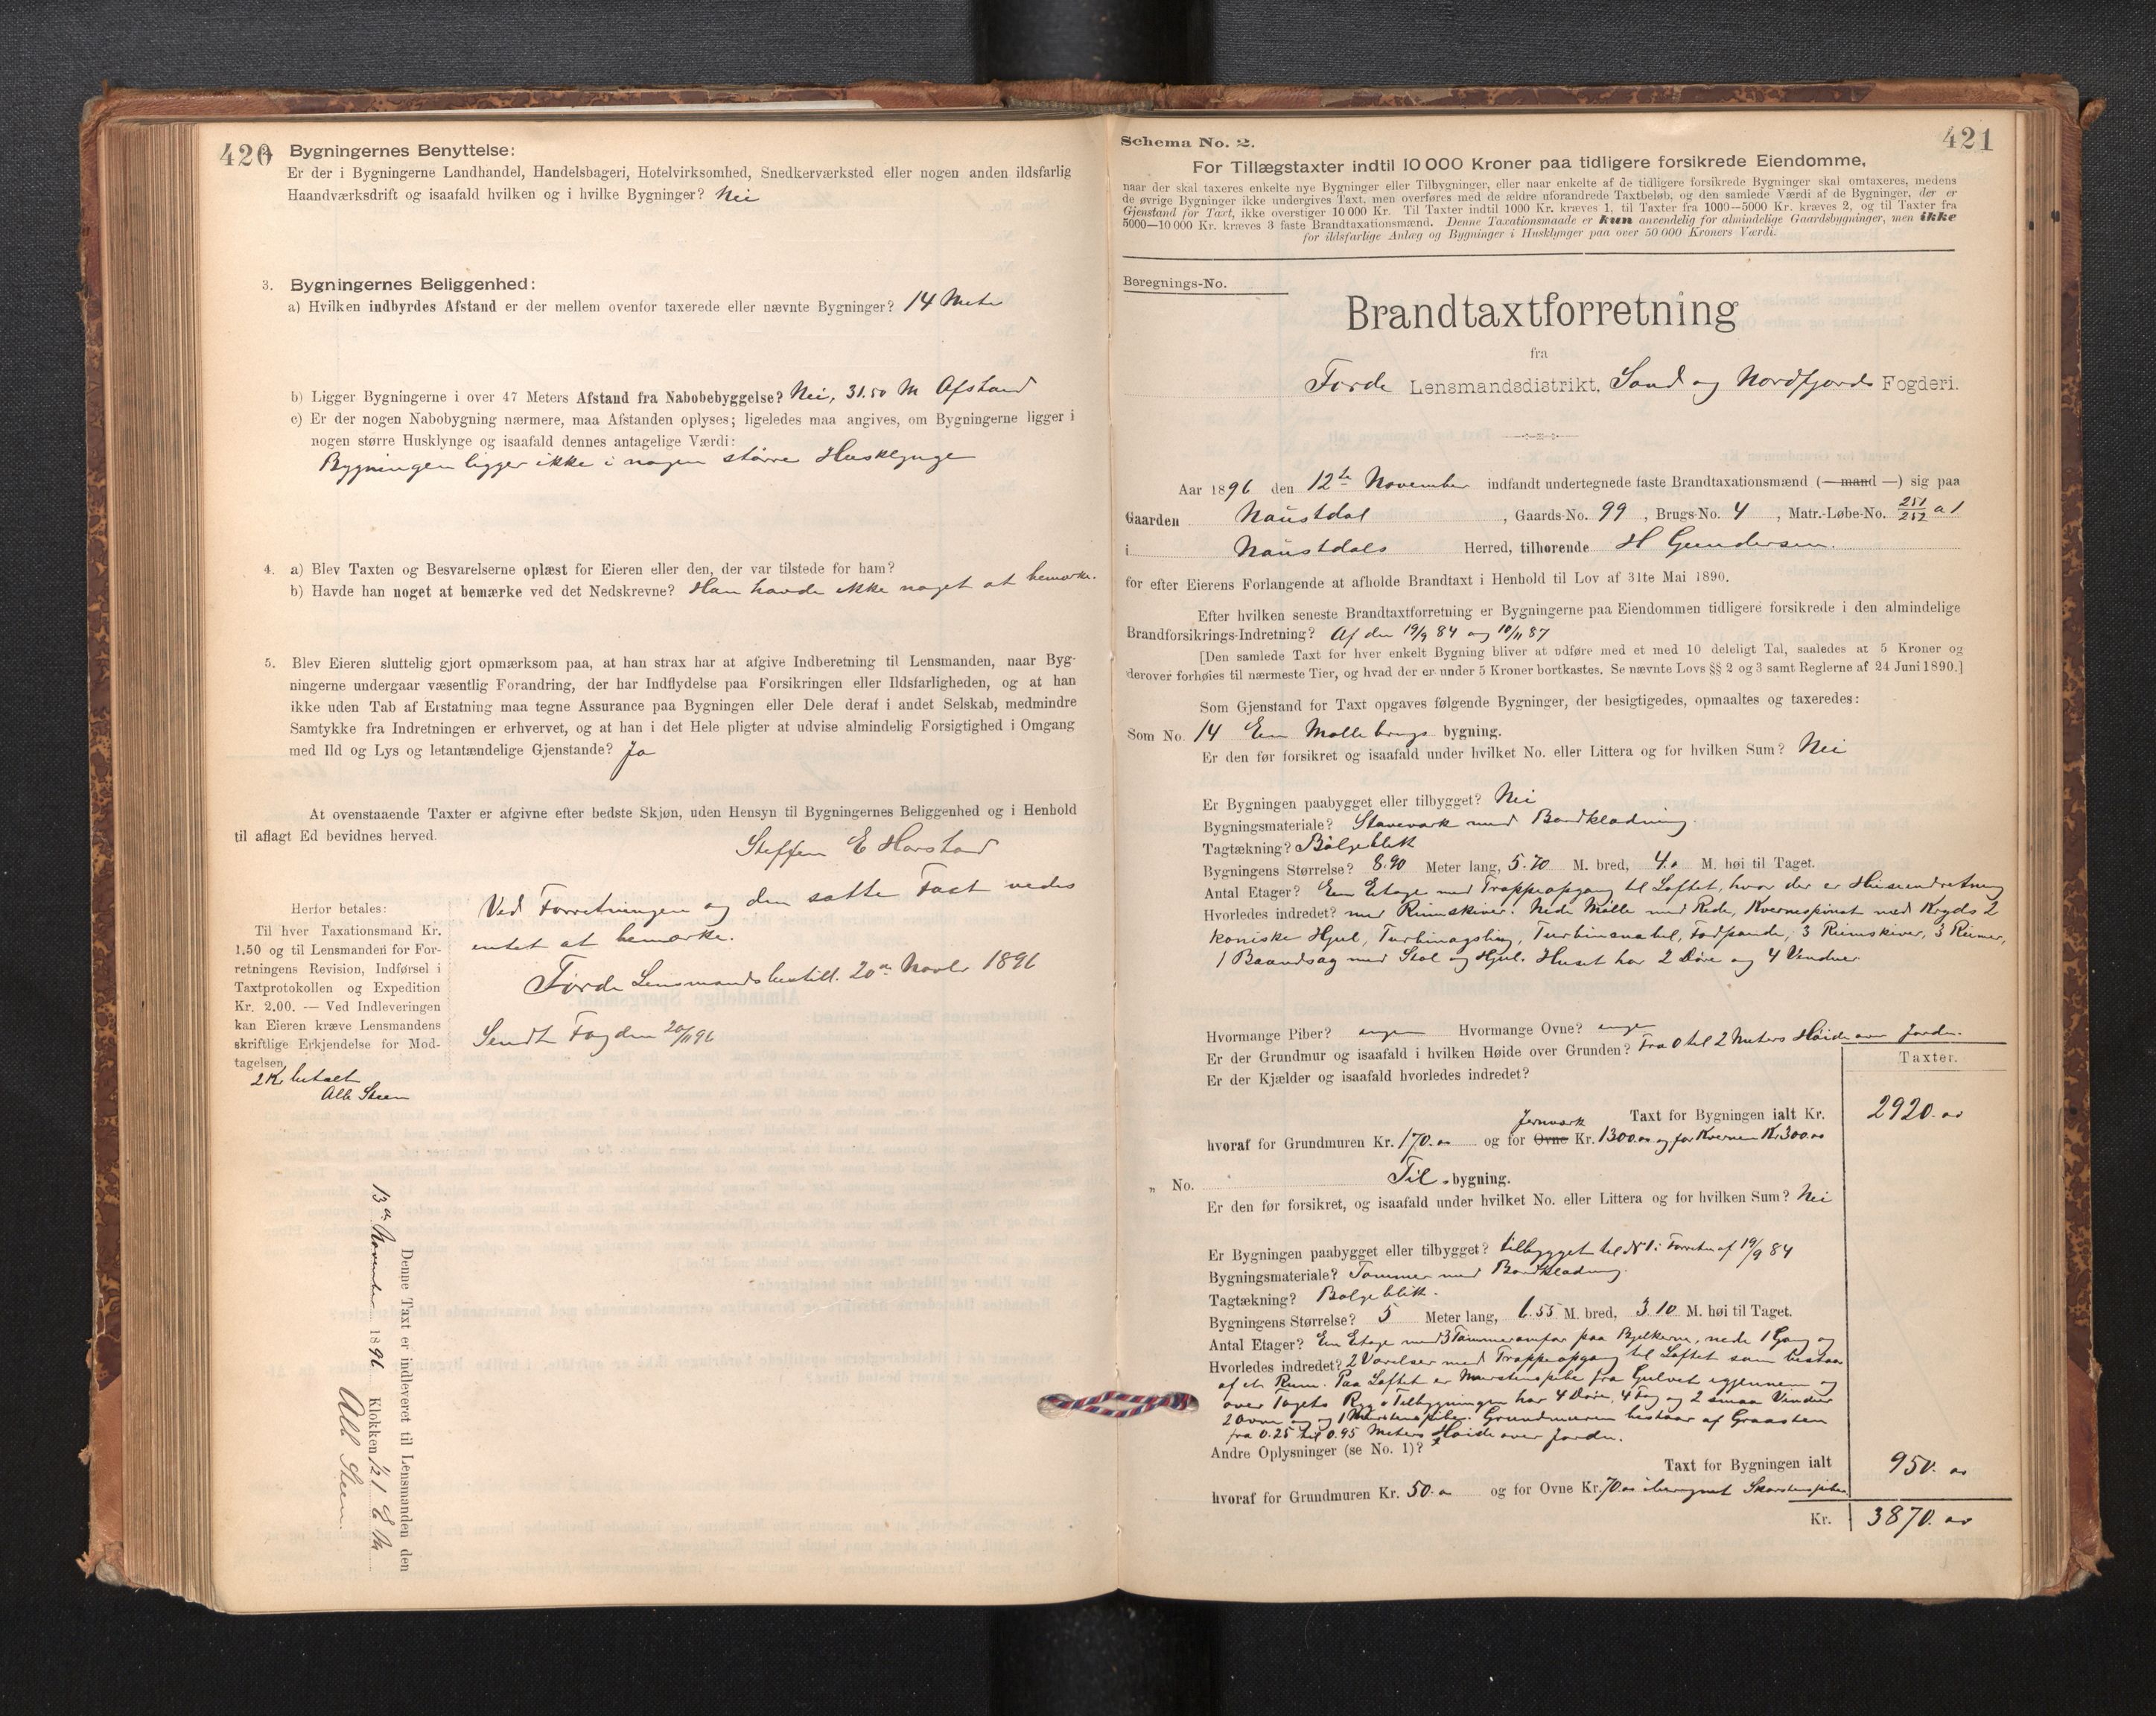 420
2. Bygningernes Benyttelse:
Er der i Bygningerne Landhandel, Handelsbageri, Hotelvirksomhed, Snedkerværksted eller nogen anden ildsfarlig
Haandværksdrift og isaafald hvilken og i hvilke Bygninger? Nei
3. Bygningernes Beliggenhed:
a) Hvilken indbyrdes Afstand er der mellem ovenfor taxerede eller nævnte Bygninger? 14 Meter
b) Ligger Bygningerne i over 47 Meters Afstand fra Nabobebyggelse? Nei, 31.50 M Afstand
c) Er der nogen Nabobygning nærmere, maa Afstanden oplyses; ligeledes maa angives, om Bygningerne ligger i
nogen større Husklynge og isaafald dennes antagelige Værdi:
Bygningen ligger ikke i nogen større Husklynge
4. a) Blev Taxten og Besvarelserne oplæst for Eieren eller den, der var tilstede for ham?
b) Havde han noget at bemærke ved det Nedskrevne? Han havde ikke noget at bemærke.
5. Blev Eieren sluttelig gjort opmærksom paa, at han strax har at afgive Indberetning til Lensmanden, naar Byg-
ningerne undergaar væsentlig Forandring, der har Indflydelse paa Forsikringen eller Ildsfarligheden, og at han
ikke uden Tab af Erstatning maa tegne Assurance paa Bygningen eller Dele deraf i andet Selskab, medmindre
Samtykke fra Indretningen er erhvervet, og at han i det Hele pligter at udvise almindelig Forsigtighed i Omgang
med Ild og Lys og letantændelige Gjenstande? Ja
At ovenstaaende Taxter er afgivne efter bedste Skjøn, uden Hensyn til Bygningernes Beliggenhed og i Henhold
til aflagt Ed bevidnes herved.
Steffen E Horstad
Ved Forretningen og den satte Taxt vides
intet at bemærke.
Førde Lensmandsbestill. 20de Novbr 1896
Sendt Fogden 20/11 96
Herfor betales:
Til hver Taxationsmand Kr.
1.50 og til Lensmanden for For-
retningens Revision, Indførsel i
Taxtprotokollen og Expedition
Kr. 2.00. — Ved Indleveringen
kan Eieren kræve Lensmandens
skriftlige Erkjendelse for Mod-
tagelsen.
2 Kr betalt
Alb Steen
Denne Taxt er indleveret til Lensmanden den
13de November 1896 Klokken 1/2 1 E M
Alb Steen.
421
Schema No. 2.
For Tillægstaxter indtil 10 000 Kroner paa tidligere forsikrede Eiendomme,
naar der skal taxeres enkelte nye Bygninger eller Tilbygninger, eller naar enkelte af de tidligere forsikrede Bygninger skal omtaxeres, medens
de øvrige Bygninger ikke undergives Taxt, men overføres med de ældre uforandrede Taxtbeløb, og den samlede Værdi af de Bygninger, der er
Gjenstand for Taxt, ikke overstiger 10 000 Kr. Til Taxter indtil 1000 Kr. kræves 1, til Taxter fra 1000—5000 Kr. kræves 2, og til Taxter fra
5000—10 000 Kr. kræves 3 faste Brandtaxationsmænd. Denne Taxationsmaade er kun anvendelig for almindelige Gaardsbygninger, men ikke
for ildsfarlige Anlæg og Bygninger i Husklynger paa over 50 000 Kroners Værdi.
Beregnings-No.
Brandtaxtforretning
fra
Førde Lensmandsdistrikt, Sønd og Nordfjords Fogderi.
Aar 1896 den 12te November indfandt undertegnede faste Brandtaxationsmænd (— mand —) sig paa
Gaarden Naustdal, Gaards-No. 99, Brugs-No. 4, Matr.-Løbe-No. 251/252 a 1
i Naustdals Herred, tilhørende H Gundersen.
for efter Eierens Forlangende at afholde Brandtaxt i Henhold til Lov af 31te Mai 1890.
Efter hvilken seneste Brandtaxtforretning er Bygningerne paa Eiendommen tidligere forsikrede i den almindelige
Brandforsikrings-Indretning? Af den 19/9 84 og 10/11 87
[Den samlede Taxt for hver enkelt Bygning bliver at udføre med et med 10 deleligt Tal, saaledes at 5 Kroner og
derover forhøies til nærmeste Tier, og hvad der er under 5 Kroner bortkastes. Se nævnte Lovs §§ 2 og 3 samt Reglerne af 24 Juni 1890.]
Som Gjenstand for Taxt opgaves følgende Bygninger, der besigtigedes, opmaaltes og taxeredes:
Som No. 14 En Møllebrugs bygning.
Er den før forsikret og isaafald under hvilket No. eller Littera og for hvilken Sum? Nei
Er Bygningen paabygget eller tilbygget? Nei
Bygningsmateriale? Stavværk med Bordklædning.
Tagtækning? Bølgeblik
Bygningens Størrelse? 8.90 Meter lang, 5.70 M. bred, 4.0 M. høi til Taget.
Antal Etager? Een Etage med Trappeopgang til Loftet, hvor der er
Hvorledes indredet? med Rimskiver. Nede Mølle med Rede, med Kryds 2
koniske Hjul, 3 Rimskiver, 3 Rimer,
1 Baandsag med Stol og Hjul. Huset har 2 Døre og 4 Vinduer
Hvormange Piber? ingen Hvormange Ovne? ingen
Er der Grundmur og isaafald i hvilken Høide over Grunden? Fra 0 til 2 Meters Høide over Jorden.
Er der Kjælder og isaafald hvorledes indredet?
Taxter.
Taxt for Bygningen ialt Kr. 2920.00
Jernværk
hvoraf for Grundmuren Kr. 170.00 og for Ovne Kr. 1300.00 og for Kvernen Kr 300.00
„ No. Til bygning.
Er den før forsikret, og isaafald under hvilket No. eller Littera og for hvilken Sum? Nei
Er Bygningen paabygget eller tilbygget? tilbygget til N 1 i Forretn af 19/9 84
Bygningsmateriale? Tømmer med Bordklædning.
Tagtækning? Bølgeblik.
Bygningens Størrelse? 5 Meter lang, 6.55 M. bred, 3.10 M. høi til Taget.
Antal Etager? En Etage med 3 Tømmeromfar paa Bjelkerne, nede 1 Gang og
Hvorledes indredet? 2 Værelser med Trappeopgang til Loftet som bestaar
af et Rum. Paa Loftet er Murstenspibe fra Gulvet igjennem og
over Tagets Ryg. Tilbygningen har 4 Døre, 4 Fag og 2 smaa Vinduer
2 Ovne og 1 Murstenspibe. Grundmuren bestaar af Graasten
fra 0.25 til 0.95 Meters Høide over Jorden.
Andre Oplysninger (se No. 1)?
Taxt for Bygningen ialt 950.00
hvoraf for Grundmuren Kr. 50.00 og for Ovne Kr. 70.00 iberegnet Skorstenspiben
Kr. 3870.00